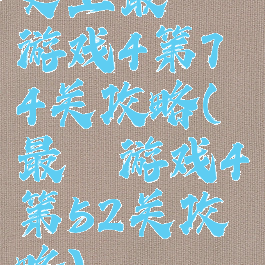 史上最
游戏4第7
4关攻略(
最 游戏4
第52关攻
略)